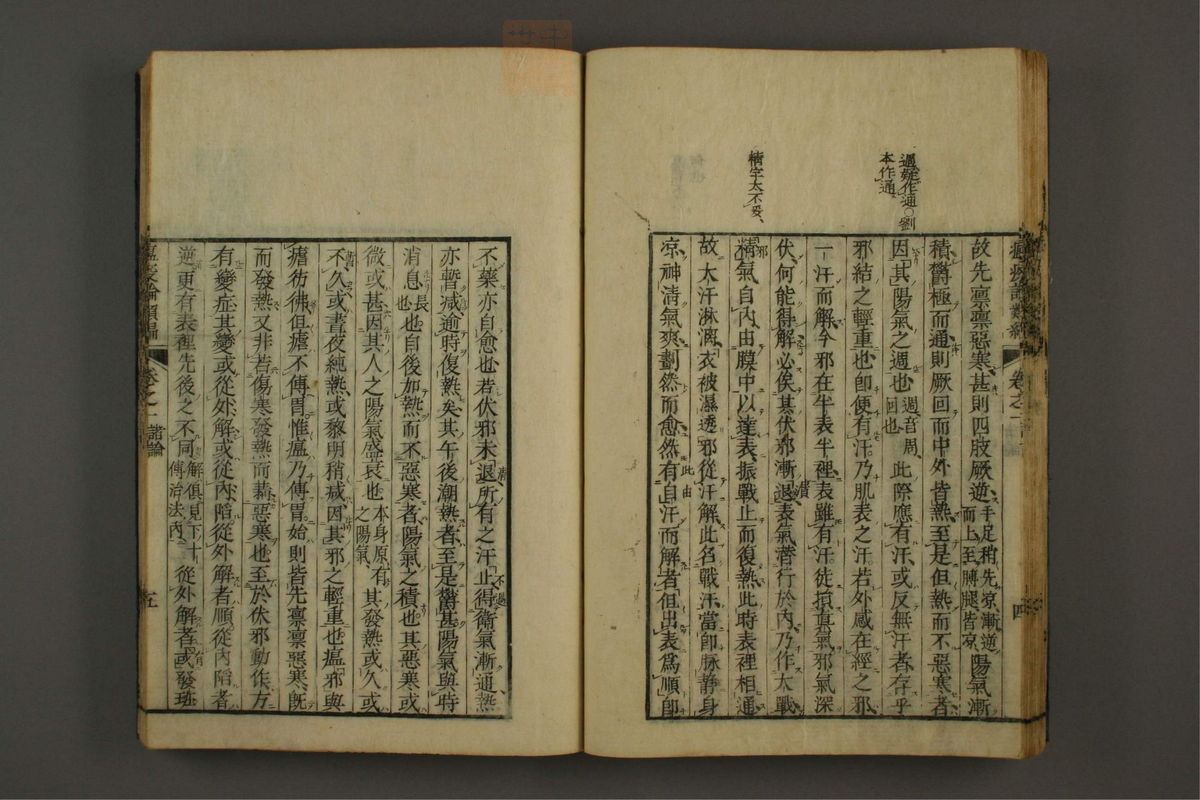 過疑作通。劉
本作通。
精字大不妥、
故先凛凛惡寒、甚則四肢厥逆、手足稍先凉、漸逆而上至膊腿皆凉、陽氣漸
積鬱極而通則厥回而中外皆熱至是但熱而不惡寒者
因其陽氣之週也週音周、回也此際應有汗或反無汗者存乎
邪結之輕重也卽使有汗乃肌表之汗若外感在經之邪
一汗而解今邪在半表半裡表雖有汗徒損眞氣邪氣深
伏何能得解必俟其伏邪漸退表氣潛行於內乃作大戰
精氣自內由膜中以達表振戰止而復熱此時表裡相通
故大汗淋漓衣被濕透邪從汗解此名戰汗當卽脉静身
凉神清氣爽劃然而愈然有自汗而解者但出表爲順卽
四
不藥亦自愈也若伏邪未退所有之汗止得衛氣漸通熱
亦暫減逾時復熱矣其午後潮熱者至是鬱甚陽氣與時
消息長也也自後加熱而不惡寒者陽氣之積也其惡寒或
微或甚因其人之陽氣盛衰也本身原有之陽氣其發熱或久或
不久或晝夜純熱或黎明稍減因其邪之輕重也瘟邪與
瘧彷彿但瘧不傳胃惟瘟乃傳胃始則皆先凛凛惡寒旣
而發熱又非若傷寒發熱而兼惡寒也至於伏邪動作方
有變症其變或從外解或從內陷從外解者順從內陷者
逆更有表裡先後之不同解俱見下十傳治法內從外解者或發斑
卷之一
諸論
五